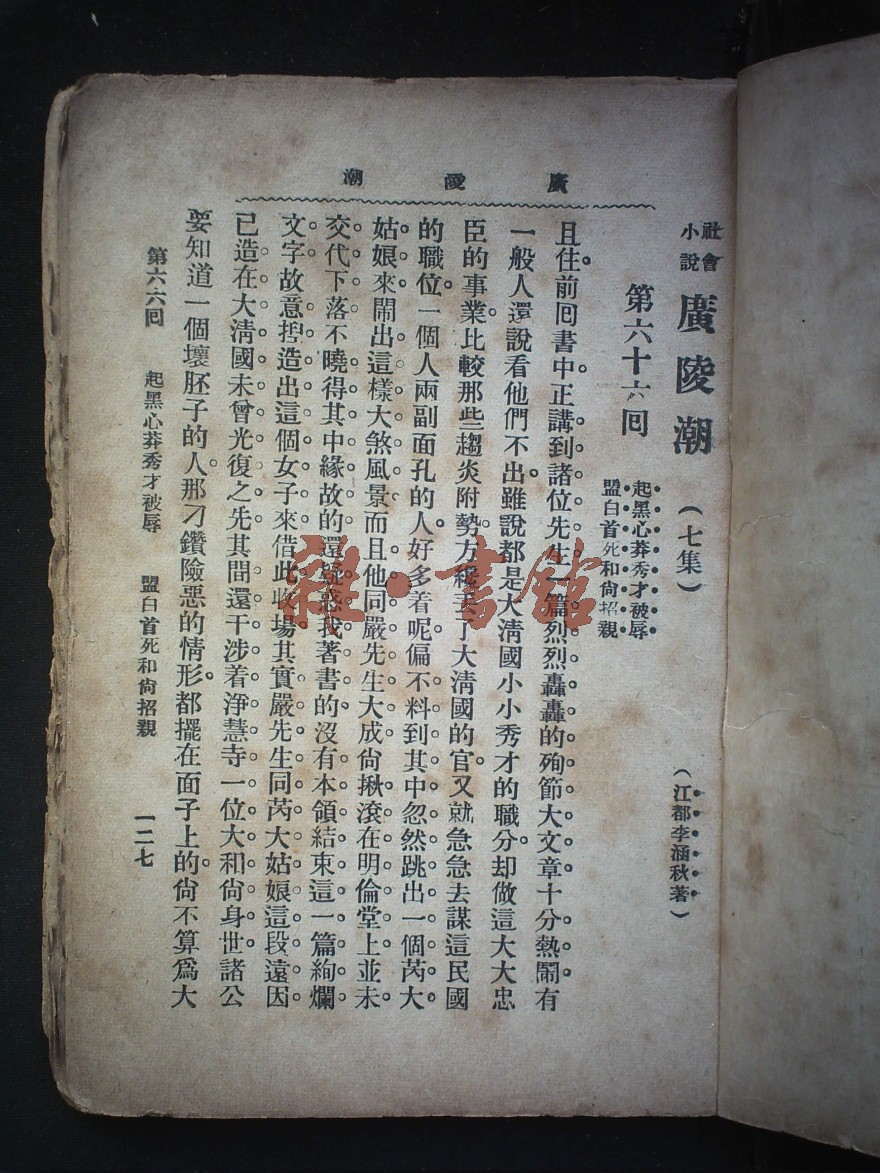 廣陵潮
社會小說 廣陵潮 (七集) (江都李涵秋著)
第六十六回
起黑心莽秀才被辱
盟白首死和尙招親
且住前回書中正講到諸位先生一篇烈烈轟轟的殉節大文章十分熱鬧。有
一般人還說看他們不出。雖說都是大淸國小小秀才的職分。却做這大大忠
臣的事業。比較那些趨炎附勢。方纔丟了大淸國的官。又就急急去謀這民國
的職位。一個人兩副面孔的人。好多着呢。偏不料到其中忽然跳出一個芮大
姑娘來。鬧出這樣大煞風景。而且他同嚴先生大成尙揪滾在明倫堂上。並未
交代下落。不曉得其中緣故的。還疑惑我著書的。沒有本領結束這一篇絢爛
文字。故意揑造出這個女子來。借此收場。其實嚴先生同芮大姑娘這段遠因。
已造在大淸國未曾光復之先。其間還干涉着淨慧寺一位大和尙身世。諸公
要知道一個壞胚子的人。那刁鑽險惡的情形。都擺在面子上的。尙不算爲大
第六六回 起黑心莽秀才被辱 盟白首死和尙招親 一二七
雜·書館